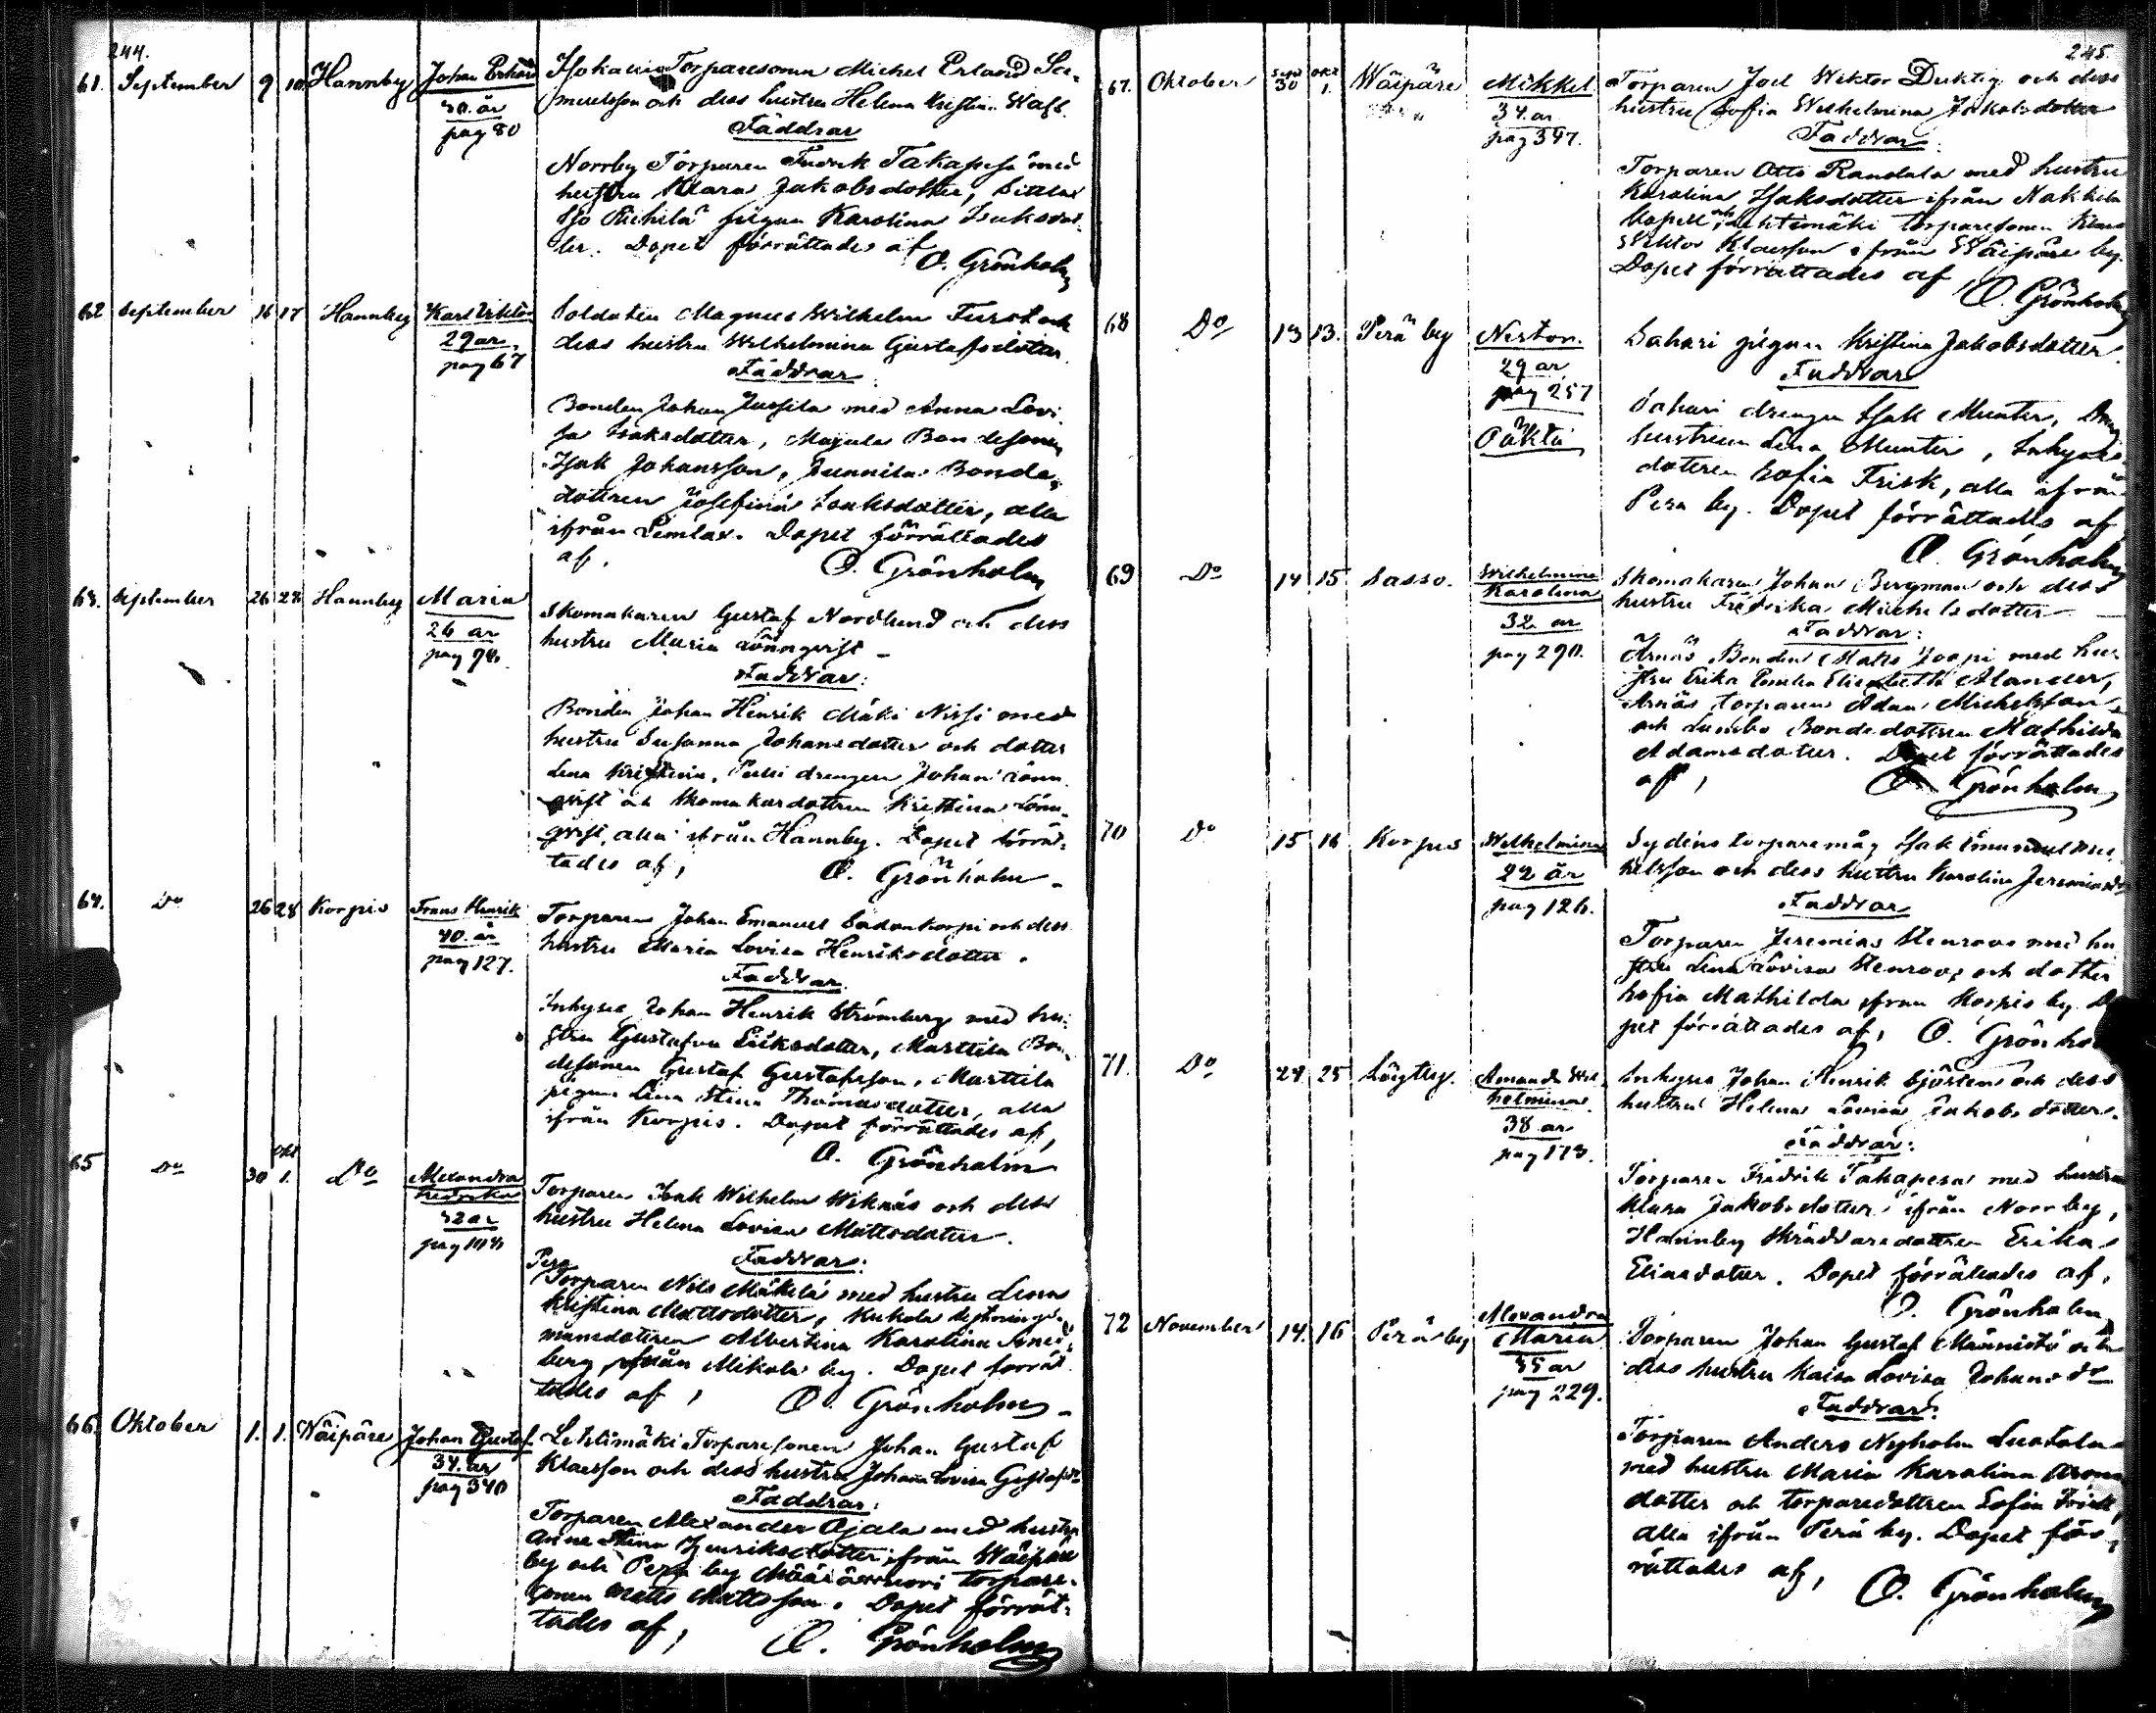 244.
61. September 9 10 Hannby Johan Erland Torparesonen Michel Erland Sa-
30. år muelsson och dess hustru Helena Kristina
pag 80 Faddrar
Norrby Torparen Fredrik Takapesä med
hustru Klara Jakobsdotter,
pigan Karolina Isaksdot-
ter. Dopet förrättades af
O. Grönholm
62 September 16 17 Hannby Karl Viktor Soldaten Magnus Wilhelm Furst och
29 år dess hustru Wilhelmina Gustafsdotter
pag 67 Faddrar
Bonden Johan Jussila med Anna Lovi-
sa Isaksdotter, Bondesonen
Isak Johansson, Junnila Bonde-
dottren Josefina Isaksdotter, alla
ifrån Lemlax. Dopet förrättades
af. O. Grönholm
63. September 26 28 Hannby Maria Skomakaren Gustaf Nordlund och dess
26 år hustru Maria Lönnqvist
pag 94. Faddrar:
Bonden Johan Henrik Mäki Nissi med
hustru Susanna Johansdotter och dotter
Lena Kristina, drengen Johan Lönn-
qvist och Skomakardottren Kristina Lönn-
qvist, alla ifrån Hannby. Dopet förrät-
tades af, O. Grönholm
64. Do 26 28 Korpis Frans Henrik Torparen Johan Emanuel Sadankorpi och dess
40. år hustru Maria Lovisa Henriksdotter.
pag 127. Faddrar
Inhyses Johan Henrik Strömberg med hu-
stru Gustafva Eriksdotter, Marttila Bon-
desonen Gustaf Gustafsson, Marttila
pigan Lena Stina Thomasdotter, alla
ifrån Korpis. Dopet förrättades af,
O. Grönholm
65 Do 30 okt 1. Do Alexandra Torparen Isak Wilhelm Wiknäs och dess
Fredrika hustru Helena Lovisa Mattsdotter.
32 år Faddrar:
Pera
Torparen Nils Mäkelä med hustru Lena
Kristina Mattsdotter,
mansdottren Albertina Karolina
berg, ifrån Mikola by. Dopet förrät-
tades af, O. Grönholm
66. Oktober 1. 1. Wäipäre Johan Gustaf Lehtimäki Torparesonen Johan Gustaf
34. år Klaesson och dess hustru Johana Lovisa Gustafsdr
pag 340 Faddrar:
Torparen Alexander Ojala med hustru
Anna Stina Henriksdotter ifrån Wäipäre
by och Pera by torpare-
sonen Matts Mattsson. Dopet förrät-
tades af, O. Grönholm
245.
67. Oktober Sept 30 okt 1. Wäipäre Mikkel Torparen Joel Wiktor Duktig och dess
34. år hustru Sofia Wilhelmina Jakobsdotter
pag 347. Faddrar:
Torparen Otto Randala med hustru
Karolina Isaksdotter ifrån Nakkila
kapell och Lehtimäki torparesonen Klas
Wiktor Klaesson ifrån Wäipäre by.
Dopet förrättades af,
O. Grönholm
68 Do 13 13. Perä by Nestor. Sahari pigan Kristina Jakobsdotter.
29 år Faddrar
pag 257
Oäkta
Sahari drengen Isak Munter,
hustrun Lena Munter, Inhyses
dottren Sofia Frisk, alla ifrån
Pera by. Dopet förrättades af
O. Grönholm
69 Do 14 15 Sasso. Wilhelmina Skomakaren Johan Bergman och dess
Karolina hustru Fredrika Michelsdotter
32 år Faddrar:
pag 290. Arnäs Bonden Matts Joopi med hu-
stru Erika Emilia Elisabeth Alander,
Arnäs torparen Adam Michelsson
och Bondedottren Mathilda
Adamsdotter. Dopet förrättades
af, O. Grönholm
70 Do 15 16 Korpis Wilhelmina Sydens torparemåg Isak Emanuel Mi-
22 år kelsson och dess hustru Karolina Jeremiasdr
pag 126. Faddrar
Torparen Jeremias Stenroos med hu-
stru Lena Lovisa Stenroos och dotter
Sofia Mathilda ifrån Korpis by. Do-
pet förrättades af, O. Grönholm
71. Do 24 25 Amanda Wil- Inhyses Johan Henrik Sjösten och dess
helmina hustru Helena Lovisa Jakobsdotter.
38 år Faddrar:
pag 173.
Torparen Fredrik Takapesä med hustru
Klara Jakobsdotter ifrån Norrby,
Hannby Skräddaredottren Erika
Eliasdotter. Dopet förrättades af,
O. Grönholm
72 November 14. 16 Perä by Alexandra
Maria Torparen Johan Gustaf Männistö och
35 år dess hustru Kaisa Lovisa Johansdr
pag 229. Faddrar:
Torparen Anders Nyholm
med hustru Maria Karolina
dotter och torparedottren Sofia Frisk,
alla ifrån Perä by. Dopet för-
rättades af, O. Grönholm